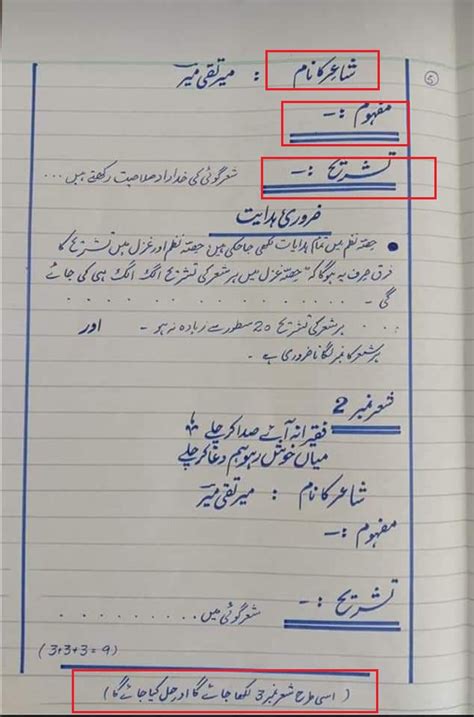 ⑤
شاعر کا نام : میر تقی میر
مفہوم :-
تشریح :- شعر گوئی کی خداداد صلاحیت رکھتے ہیں...
ضروری ہدایت
● حصّہ نظم میں تمام ہدایات لکھی جا چکی ہیں، حصّہ نظم اور غزل میں تشریح کا
فرق صرف یہ ہوگا کہ حصّہ غزل میں ہر شعر کی تشریح الگ الگ ہی کی جائے
گی - . . . . . . . . . . . . . . .
. . . ہر شعر کی تشریح 20 سطور سے زیادہ نہ ہو - اور
ہر شعر کا نمبر لگانا ضروری ہے -
شعر نمبر 2
فقیرانہ آئے صدا کر چلے
میاں خوش رہو ہم دعا کر چلے
شاعر کا نام : میر تقی میر
مفہوم :-
تشریح :- شعر گوئی میں . . . . . . . . .
(3+3+3=9)
( اسی طرح شعر نمبر 3 لکھا جائے گا اور حل کیا جائے گا )